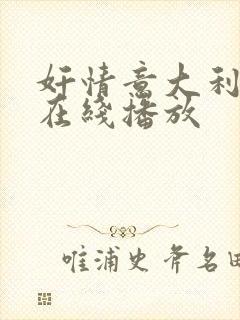 奸情意大利
在綫播放
唯浦史斧名田